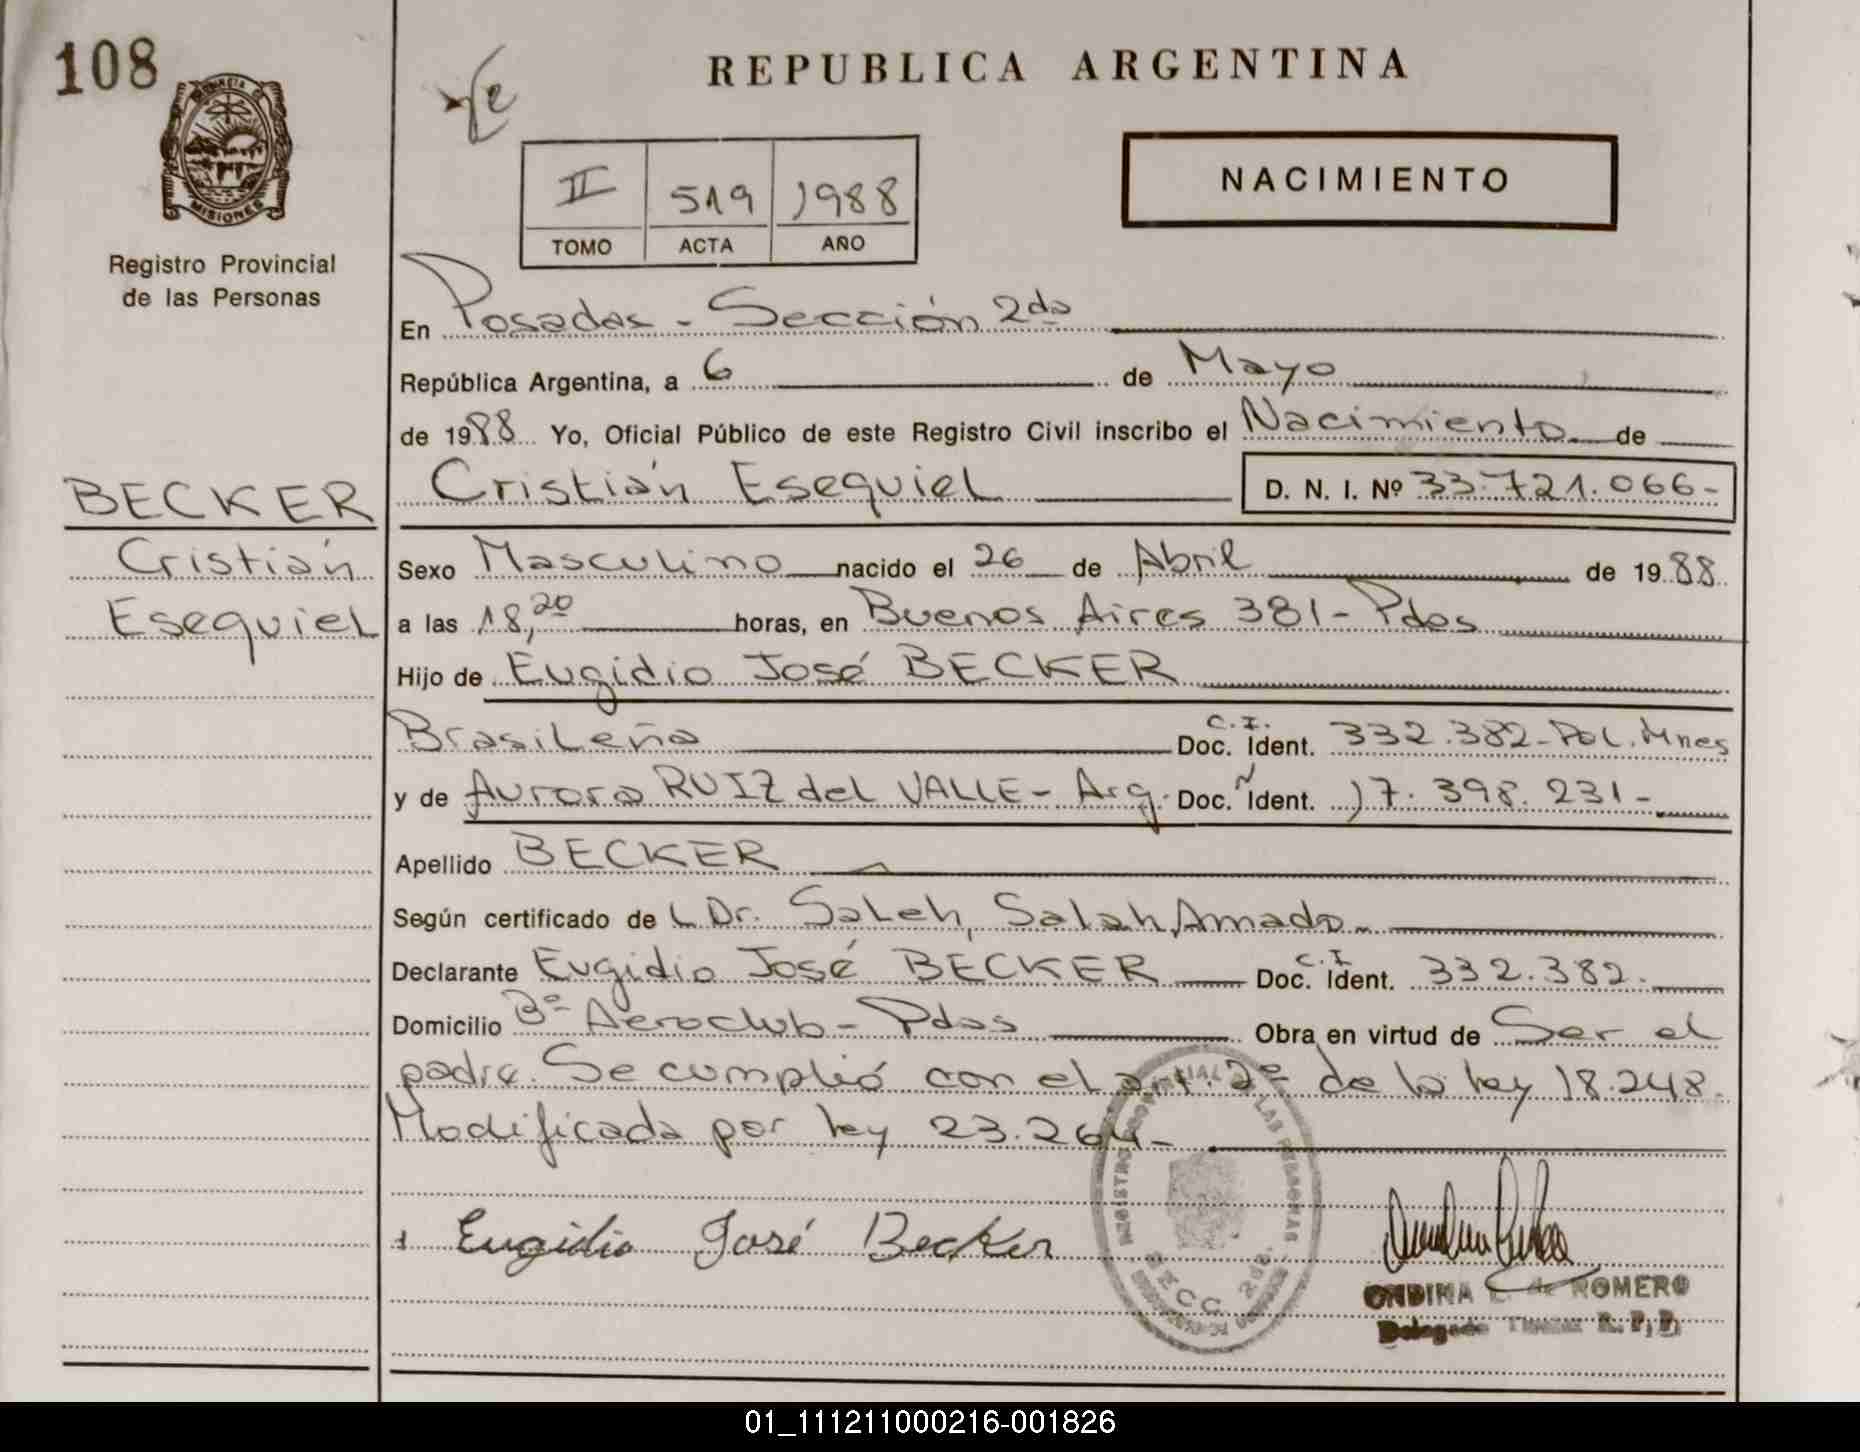 108
REPUBLICA ARGENTINA
PROVINCIA D
MISIONES
Registro Provincial
de las Personas
II 519 1988
TOMO ACTA AÑO
NACIMIENTO
En Posadas - Sección 2da
República Argentina, a 6 de Mayo
de 1988 Yo, Oficial Público de este Registro Civil inscribo el Nacimiento de
Cristián Esequiel D. N. I. Nº 33.721.066-
BECKER
Cristián
Esequiel
Sexo Masculino nacido el 26 de Abril de 1988
a las 18,20 horas, en Buenos Aires 381- Pdas
Hijo de Eugidio José BECKER
Brasileña C.I. Doc. Ident. 332.382-Pol. Mnes
y de Aurora RUIZ del VALLE - Arg. Doc. Ident. 17.398.231-
Apellido BECKER
Según certificado de L Dr. Saleh, Salah Amado
Declarante Eugidio José BECKER C.I Doc. Ident. 332.382.
Domicilio Bº Aeroclub - Pdas Obra en virtud de Ser el
padre. Se cumplió con el art. 2º de la ley 18.248.
Modificada por ley 23.264-
Eugidio José Becker
REGISTRO PROVINCIAL DE LAS PERSONAS
SECC. 2da.
ONDINA E. de ROMERO
Delegada Titular R. P. P.
01_111211000216-001826